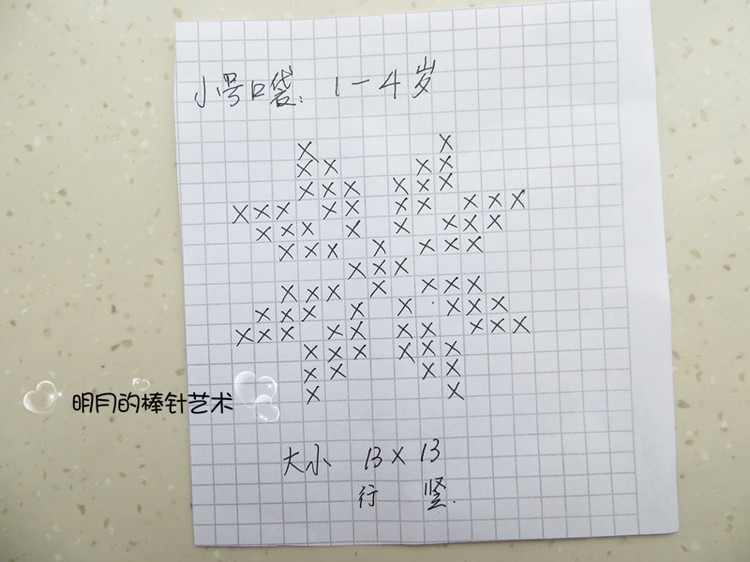 小号口袋: 1-4岁
明月的棒针艺术
大小 13×13
行 竖.